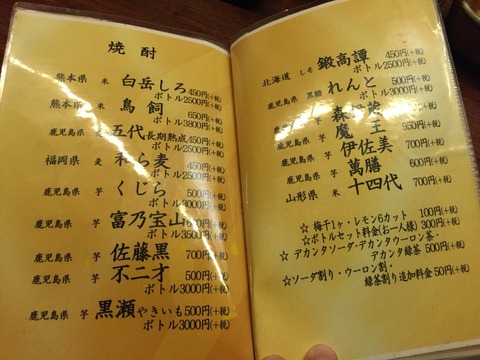 焼酎
熊本県 米 白岳しろ 450円(+税)
ボトル2500円(+税)
熊本県 米 鳥飼 650円(+税)
ボトル3800円(+税)
鹿児島県 麦 五代長期熟成 450円(+税)
ボトル2500円(+税)
福岡県 麦 和ら麦 450円(+税)
ボトル2500円(+税)
鹿児島県 芋 くじら 500円(+税)
ボトル3000円(+税)
鹿児島県 芋 富乃宝山 600円(+税)
ボトル3500円(+税)
鹿児島県 芋 佐藤黒 700円(+税)
鹿児島県 芋 不二才 500円(+税)
ボトル3000円(+税)
鹿児島県 芋 黒瀬やきいも 500円(+税)
ボトル3000円(+税)
北海道 しそ 鍛高譚 450円(+税)
ボトル2500円(+税)
鹿児島県 黒糖 れんと 500円(+税)
ボトル3000円(+税)
鹿児島県 芋 森伊蔵
鹿児島県 芋 魔王 950円(+税)
鹿児島県 芋 伊佐美 700円(+税)
鹿児島県 芋 萬膳 600円(+税)
山形県 米 十四代 700円(+税)
☆梅干1ヶ・レモン6カット 100円(+税)
☆ボトルセット料金(お一人様) 300円(+税)
☆アデカンタソーダ・アデカンタウーロン茶・
アデカンタ緑茶 500円(+税)
☆ソーダ割り・ウーロン割・
緑茶割り追加料金 50円(+税)